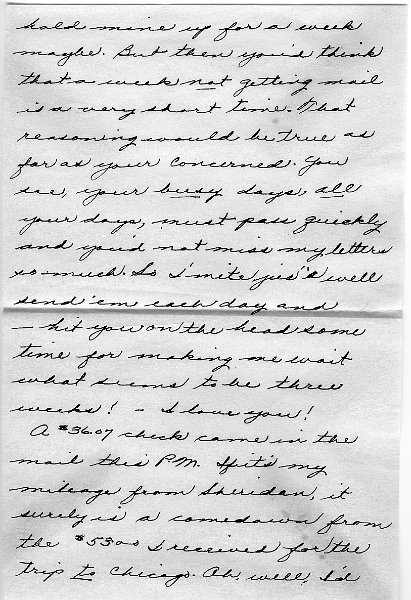 hold mine up for a week
maybe. But then you'd think
that a week not getting mail
is a very short time. That
reasoning would be true as
far as your concerned. You
see, your busy days, all
your days, must pass quickly
and you'd not miss my letters
so much. So I mite jus's well
send 'em each day and
– hit you on the head some
time for making me wait
what seems to be three
weeks! – I love you!
A $36.07 check came in the
mail this P.M. If it's my
mileage from Sheridan, it
surely is a comedown from
the $53.00 I received for the
trip to Chicago. Oh, well, I'd